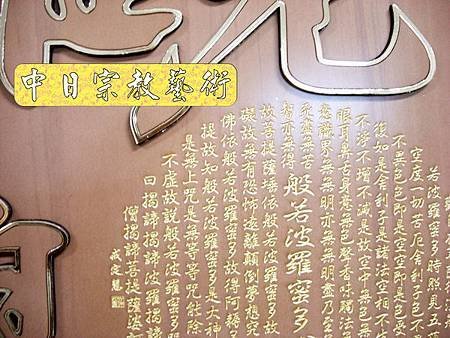 中日宗教藝術
若波羅蜜多時照見五
空度一切苦厄舍利子色不
不異色色即是空空即是色受
復如是舍利子是諸法空相不
不淨不增不減是故空中無色
眼耳鼻舌身意無色聲香味觸法
意識界無無明亦無無明盡乃至
無無苦
智亦無得
般若波羅蜜多
故菩提薩埵依般若波羅蜜多
礙故無有恐怖遠離顛倒夢想究
佛依般若波羅蜜多故得阿耨多
提故知般若波羅蜜多是大神
是無上咒是無等等咒能除
不虛故說般若波羅蜜多
曰揭諦揭諦波羅揭諦
僧揭諦菩提薩婆訶
戒定慧